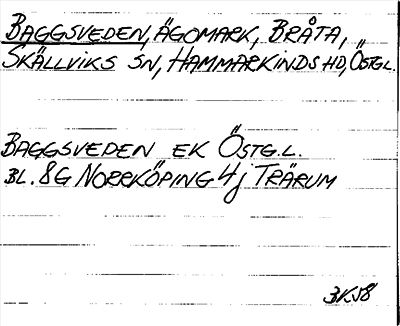 BAGGSVEDEN, ÄGOMARK, BRÅTA,
SKÄLLVIKS SN, HAMMARKINDS HD, ÖSTG.L.
BAGGSVEDEN EK ÖSTG.L.
BL. 8G NORRKÖPING 4j TRÄRUM